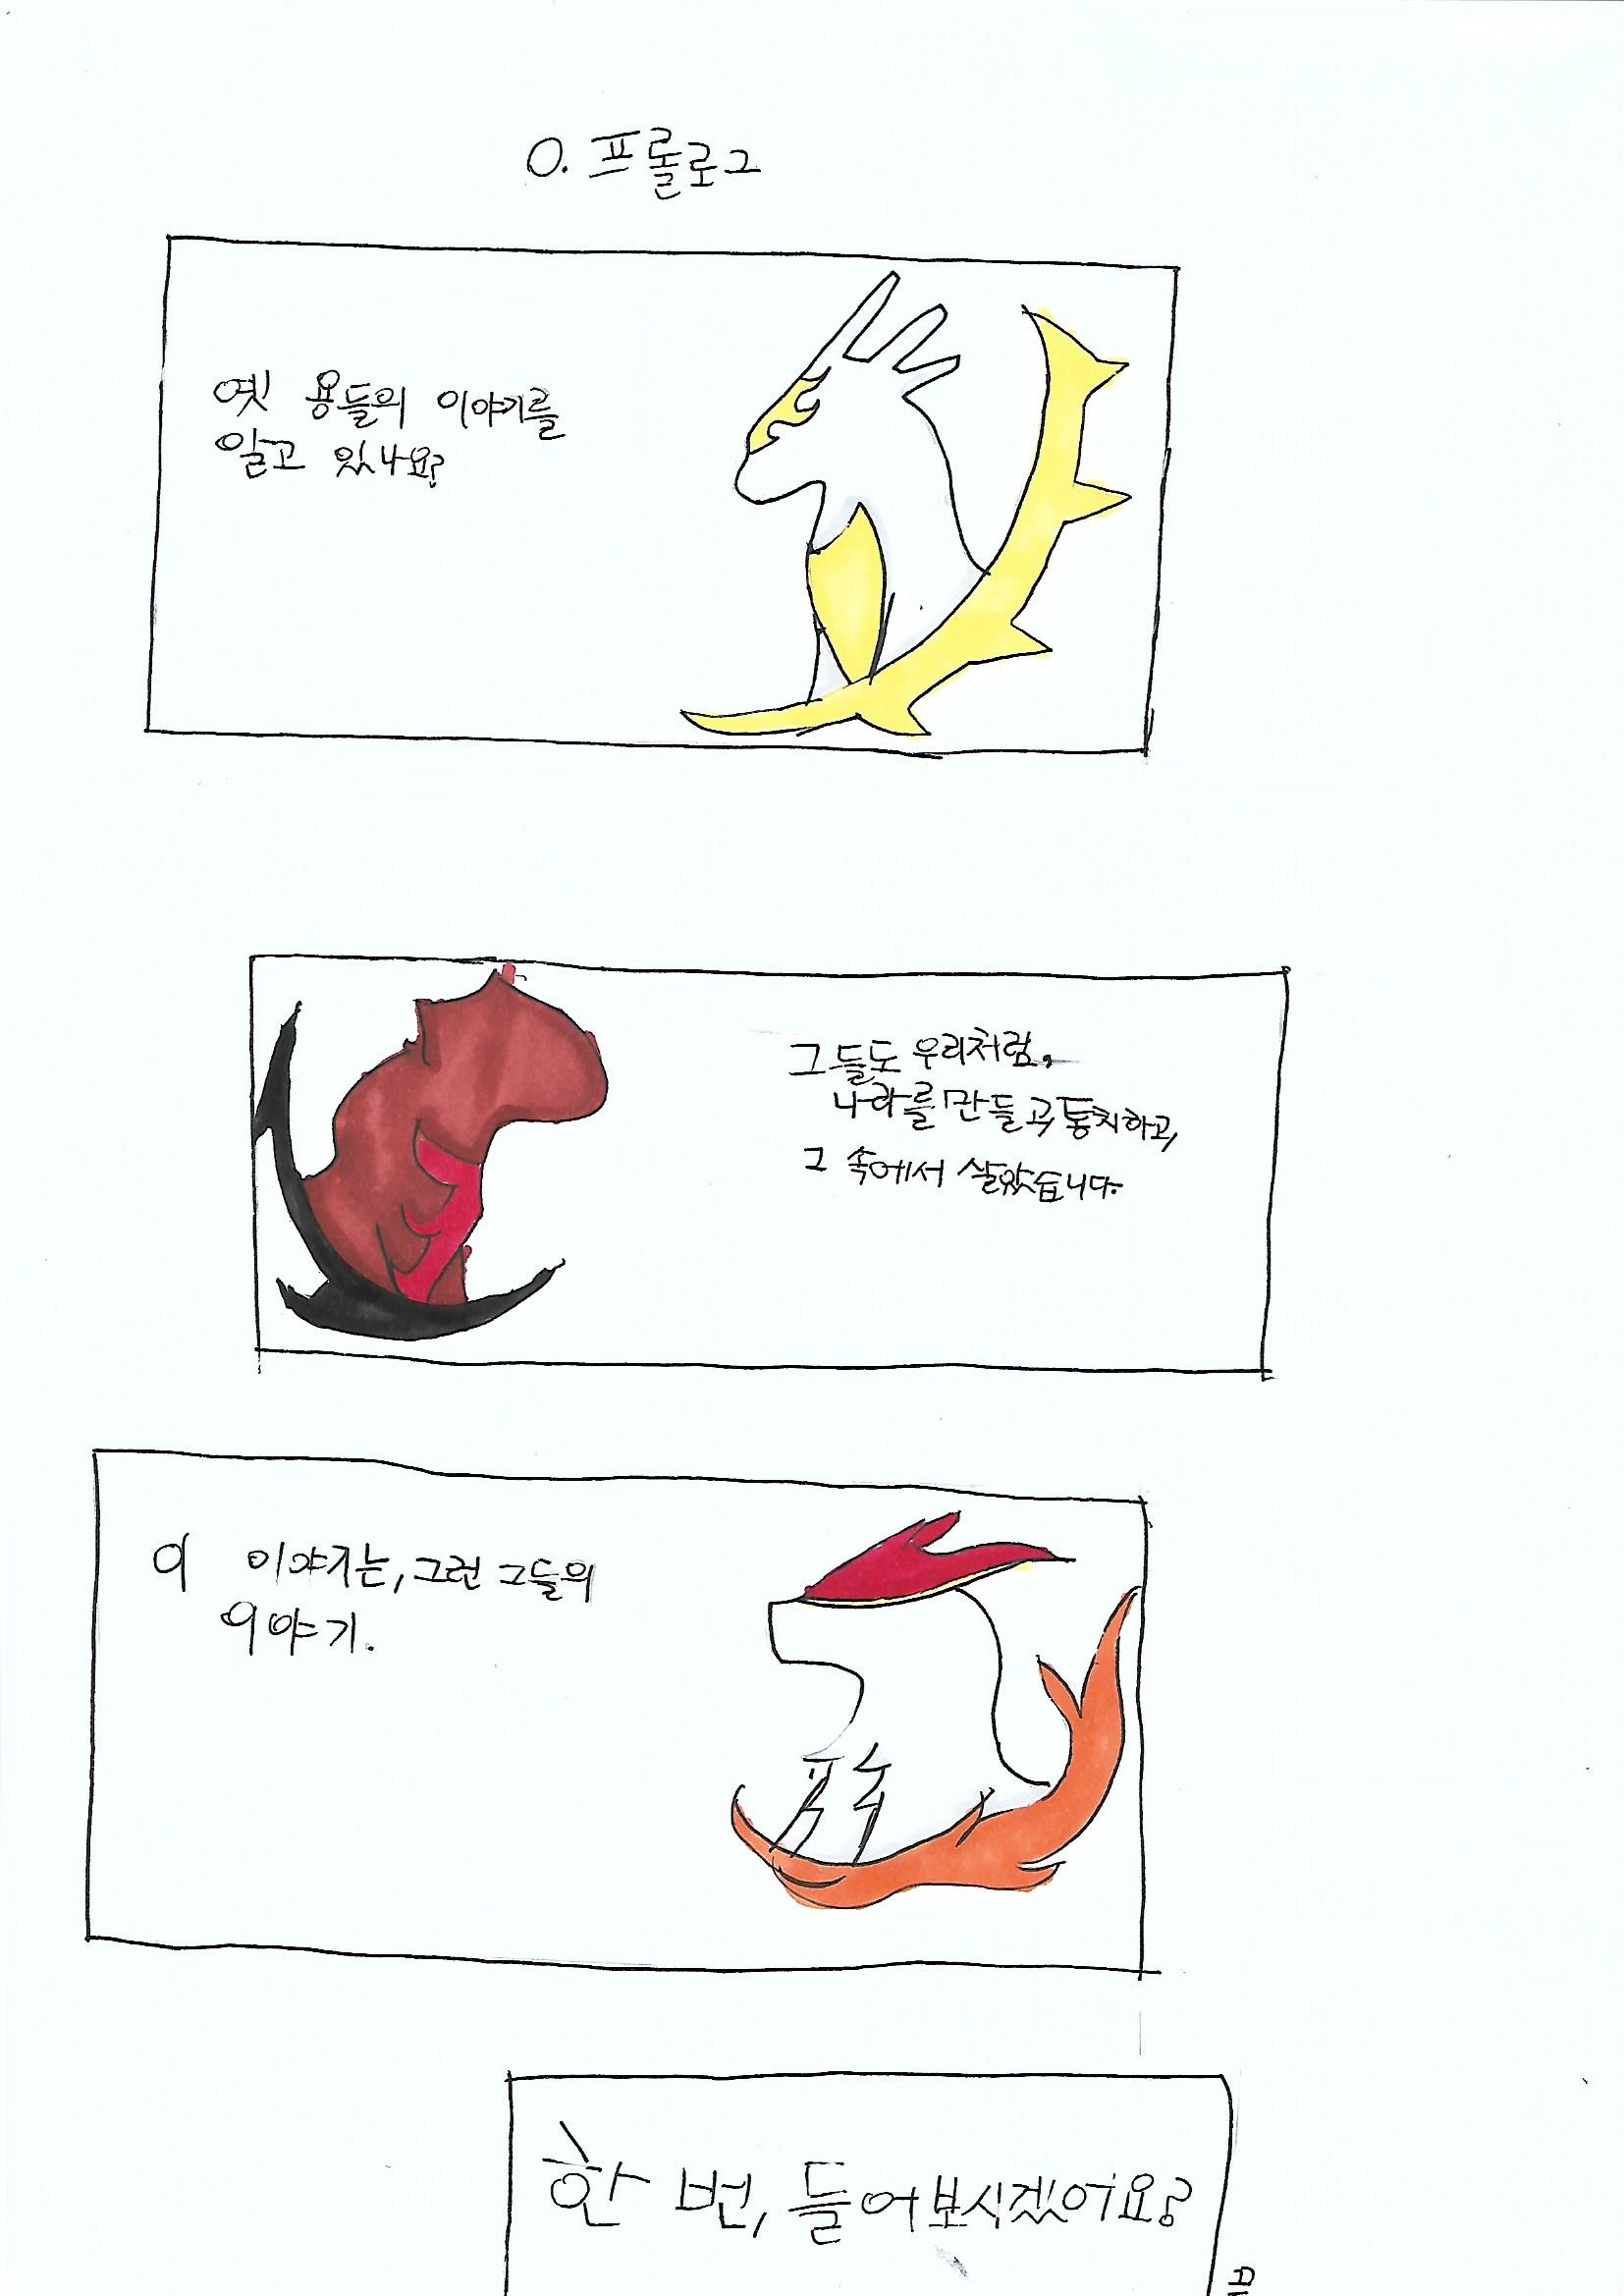 0. 프롤로그
옛 용들의 이야기를
알고 있나요?
그들도 우리처럼,
나라를 만들고, 통치하고,
그 속에서 살았습니다.
이 이야기는, 그런 그들의
이야기.
한 번, 들어보시겠어요?